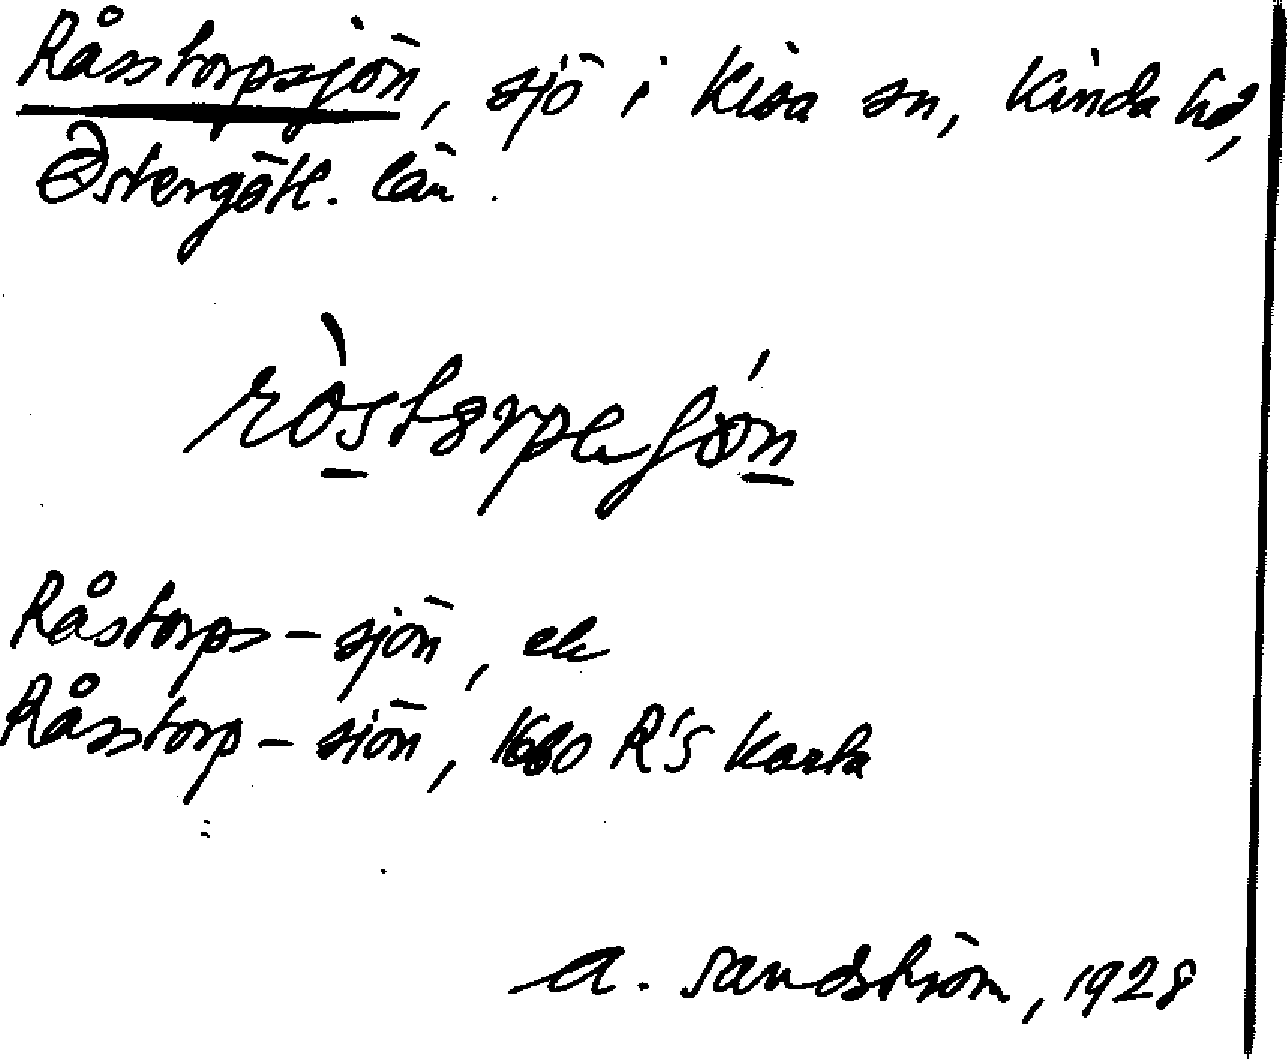 Råsstorpsjön, sjö i Kisa sn, Kinda hd,
Östergötl. län.
Råstorps-sjön, ek
Råsstorp-siön, 1680 R's Karta
A. Sandström, 1928